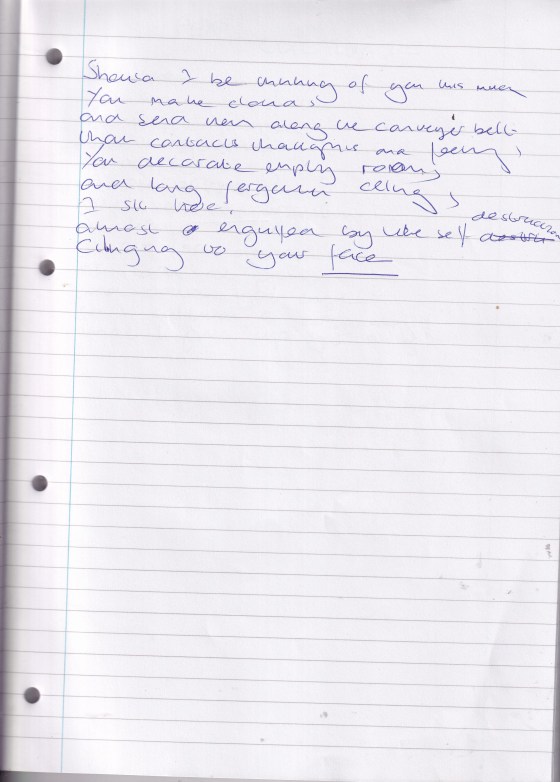 Should I be thinking of you this much
You make clouds,
and send them along the conveyer belt
that contacts thoughts and feelings,
You decorate empty rooms,
and long forgotten ceilings,
I sit here,
almost engulfed by the self destruction
Clinging to your face